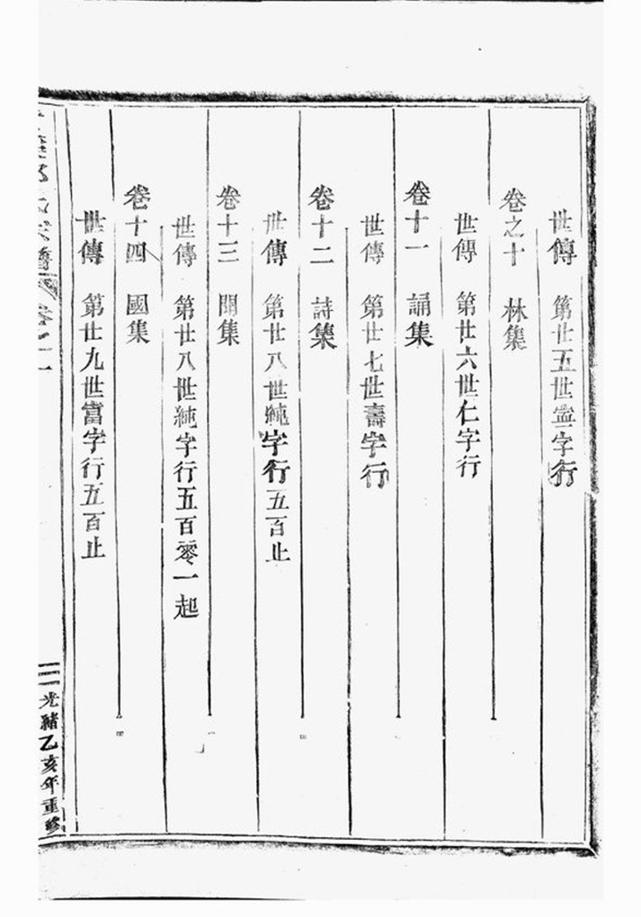 世傳 第廿五世寍字行
卷之十 林集
世傳 第廿六世仁字行
卷十一 誦集
世傳 第廿七世壽字行
卷十二 詩集
世傳 第廿八世純字行五百止
卷十三 聞集
世傳 第廿八世純字行五百零一起
卷十四 國集
世傳 第廿九世富字行五百止
光緒乙亥年重修